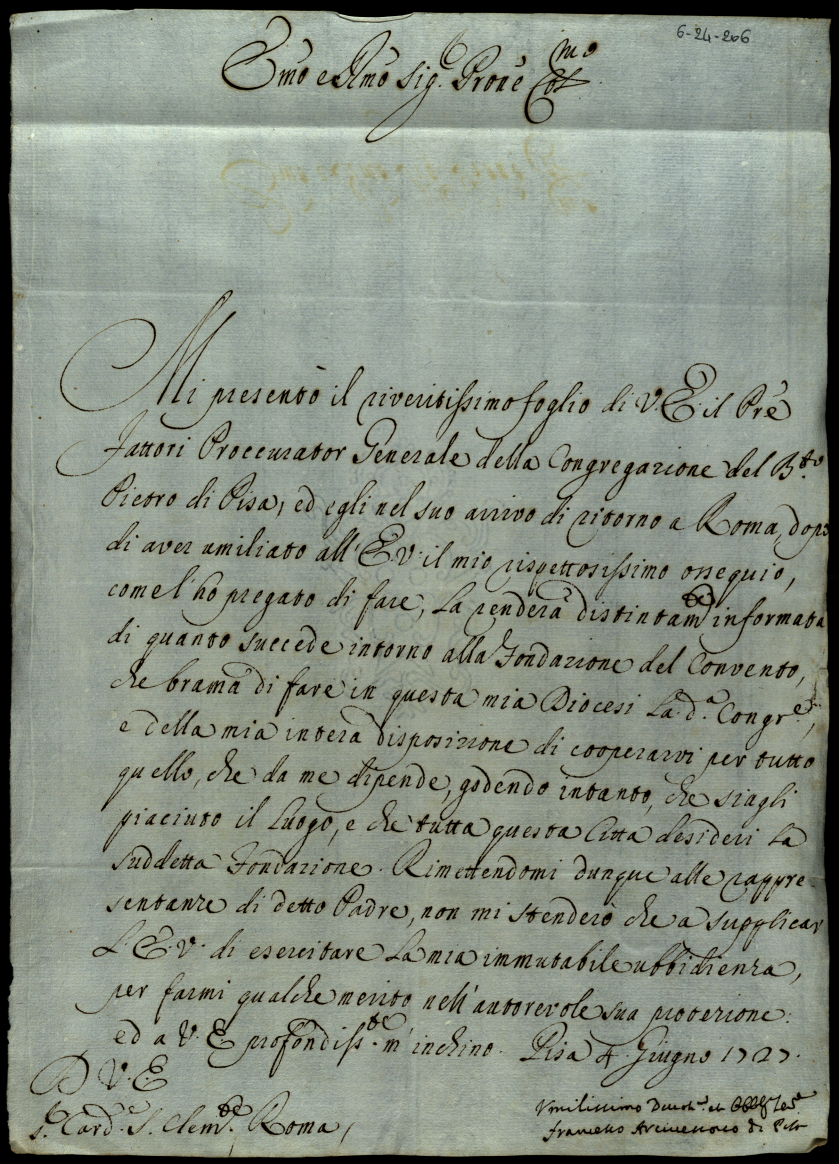 6-24-206
Emo e Rmo Sig.e Prone Col.mo
Mi presentò il riveritissimo foglio di V.E. il Prê
Fattori Proccurator Generale della Congregazione del B.to
Pietro di Pisa, ed egli nel suo arrivo di ritorno a Roma, dopo
di aver umiliato all'E.V. il mio rispettosissimo ossequio,
come l'ho pregato di fare, La renderà distintam.te informata
di quanto succede intorno alla Fondazione del Convento,
che brama di fare in questa mia Diocesi la d.a Congr.e,
e della mia intera disposizione di cooperarvi per tutto
quello, che da me dipende, godendo intanto, che siagli
piaciuto il Luogo, e che tutta questa Città desideri la
suddetta Fondazione. Rimettendomi dunque alle rappre
sentanze di detto Padre, non mi stenderò che a supplicar
L'E.V. di esercitare la mia immutabile ubbidienza,
per farmi qualche merito nell'autorevole sua protezione:
ed a V.E. profondiss.te m'inchino. Pisa 4 Giugno 1727.
D V.E
S.r Card.e S. Clem.te Roma
Umilissimo Devot.o et Obblig
Francesco Arcivescovo di Pisa